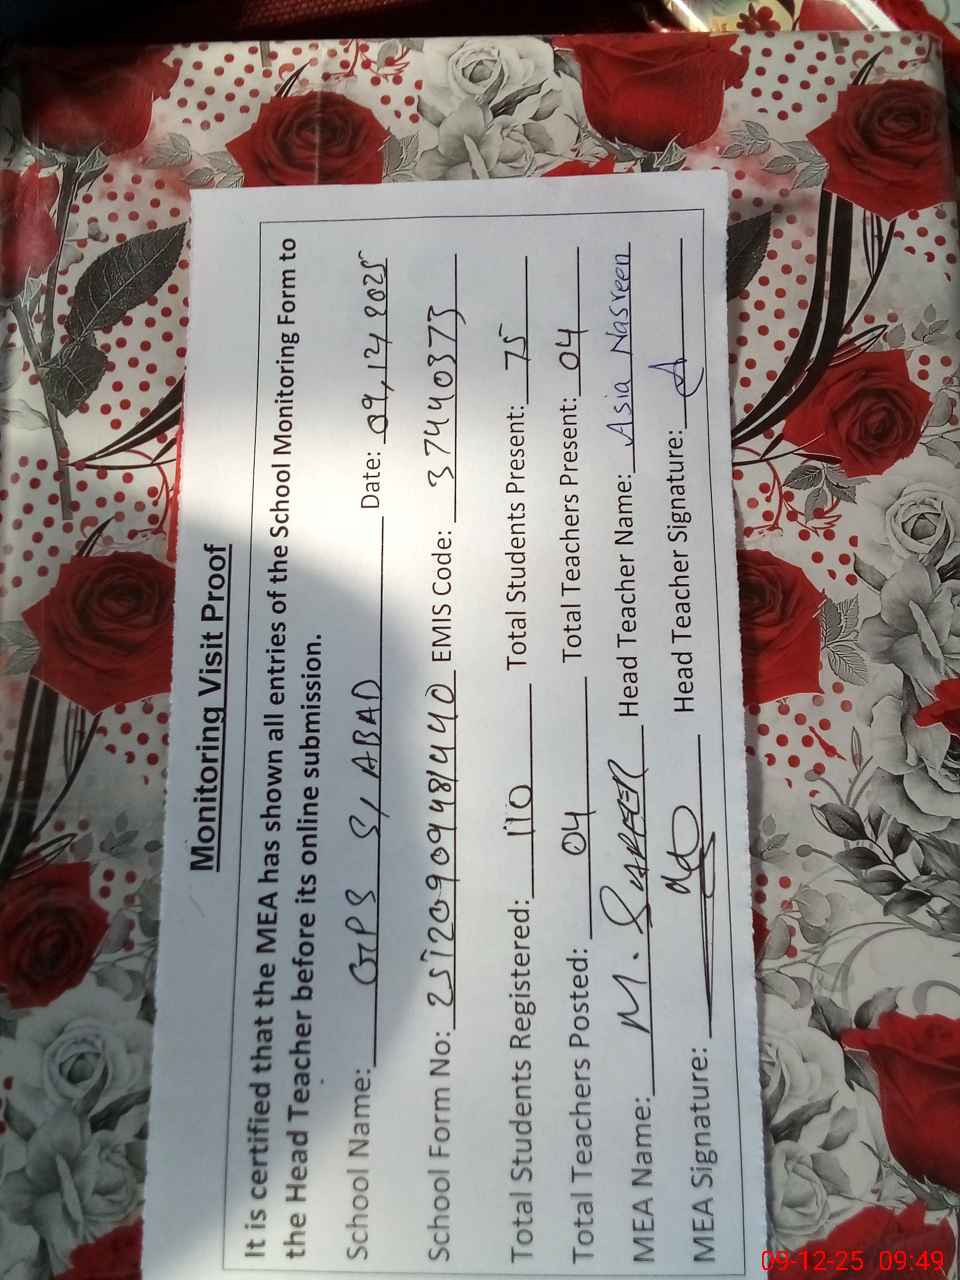 Monitoring Visit Proof
It is certified that the MEA has shown all entries of the School Monitoring Form to
the Head Teacher before its online submission.
School Name: GPS S/ABAD Date: 09,12,2025
School Form No: 251209094814440 EMIS Code: 37440373
Total Students Registered: 110 Total Students Present: 75
Total Teachers Posted: 04 Total Teachers Present: 04
MEA Name: M. Head Teacher Name: Asia Nasreen
MEA Signature: Head Teacher Signature:
09-12-25 09:49